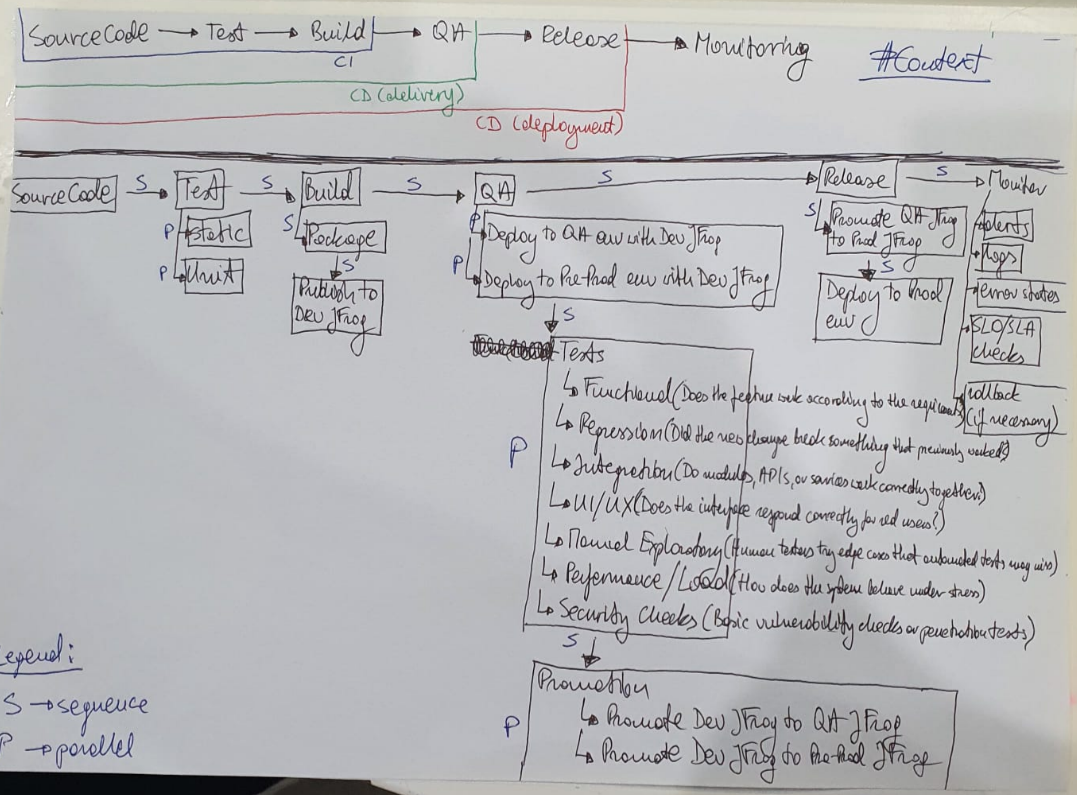 SourceCode → Test → Build → QA → Release → Monitoring
#Context
CI
CD (delivery)
CD (deployment)
SourceCode S → Test S → Build S → QA S → Release S → Monitor
P Static
P Unit
S Package
S
Publish to
Dev JFrog
P Deploy to QA env with Dev JFrog
P Deploy to Pre-Prod env with Dev JFrog
S
Tests
P
↳ Functional (Does the feature work according to the requirements)
↳ Regression (Did the new change break something that previously worked?)
↳ Integration (Do modules, APIs, or services work correctly together?)
↳ UI/UX (Does the interface respond correctly for real users?)
↳ Manual Exploratory (Human testers try edge cases that automated tests may miss)
↳ Performance/Load (How does the system behave under stress)
↳ Security Checks (Basic vulnerability checks or penetration tests)
S
Promotion
P
↳ Promote Dev JFrog to QA JFrog
↳ Promote Dev JFrog to Pre-Prod JFrog
S Promote QA JFrog
to Prod JFrog
S
Deploy to Prod
env
alerts
logs
error states
SLO/SLA
checks
rollback
(if necessary)
Legend:
S → sequence
P → parallel